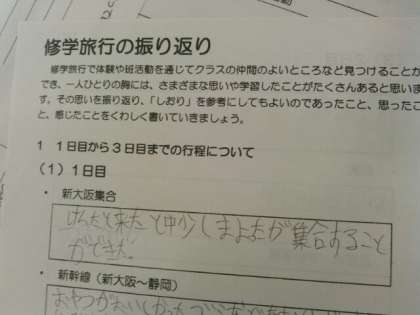 修学旅行の振り返り
修学旅行で体験や班活動を通じてクラスの仲間のよいところなど見つけることが
でき、一人ひとりの胸には、さまざまな思いや学習したことがたくさんあると思いま
す。その思いを振り返り、「しおり」を参考にしてもよいのであったこと、思ったこ
と、感じたことをくわしく書いていきましょう。
1 1日目から3日目までの行程について
(1) 1日目
・ 新大阪集合
けんたと来た と中少しまよたが集合すること
ができた。
・ 新幹線(新大阪〜静岡)
おやつがおいしかった